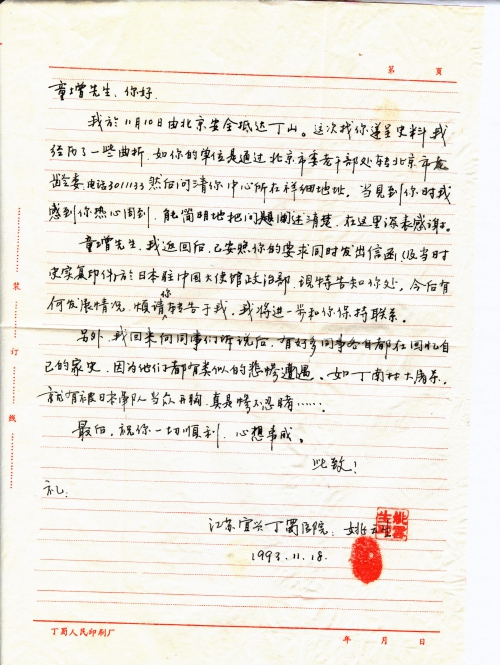 第 页
童增先生，你好
我于11月10日由北京安全抵达丁山。这次找你递呈史料，我
经历了一些曲折，如你的单位是通过北京市委老干部处转北京市老
龄委，电话301133然后问清你中心所在详细地址。当见到你时我
感到你热心周到，能简明地把问题阐述清楚，在这里深表感谢。
童增先生，我返回后，已按照你的要求同时发出信函（及当时
史实复印件）于日本驻中国大使馆政治部，现特告知你处，今后有
何发展情况，烦请你转告于我，我将进一步和你保持联系。
另外，我回来向同事们诉说后，有好多同事各自都在回忆自
己的家史，因为他们都有类似的悲惨遭遇。如丁南村大屠杀，
就有被日本军人当众开胸，真是惨不忍睹……
最后，祝你一切顺利，心想事成。
此致！
礼！
江苏宜兴丁蜀医院：姚
1993.11.18.
装
订
线
丁蜀人民印刷厂
年 月 日